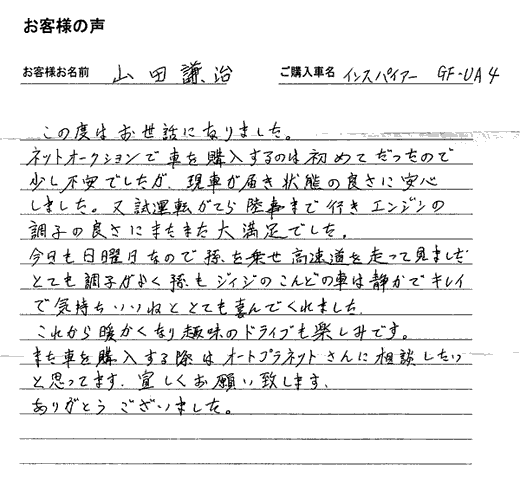 お客様の声
お客様お名前 山田謙治 ご購入車名 インスパイアー GF-UA4
この度はお世話になりました。
ネットオークションで車を購入するのは初めてだったので
少し不安でしたが、現車が届き状態の良さに安心
しました。又試運転がてら陸事まで行きエンジンの
調子の良さにまたまた大満足でした。
今日も日曜日なので孫を乗せ高速道を走って見ました
とても調子がよく孫もジィジのこんどの車は静かでキレイ
で気持ちいいねととても喜んでくれました.
これから暖かくなり趣味のドライブも楽しみです。
また車を購入する際はオートプラネットさんに相談したい
と思ってます. 宜しくお願い致します.
ありがとうございました。